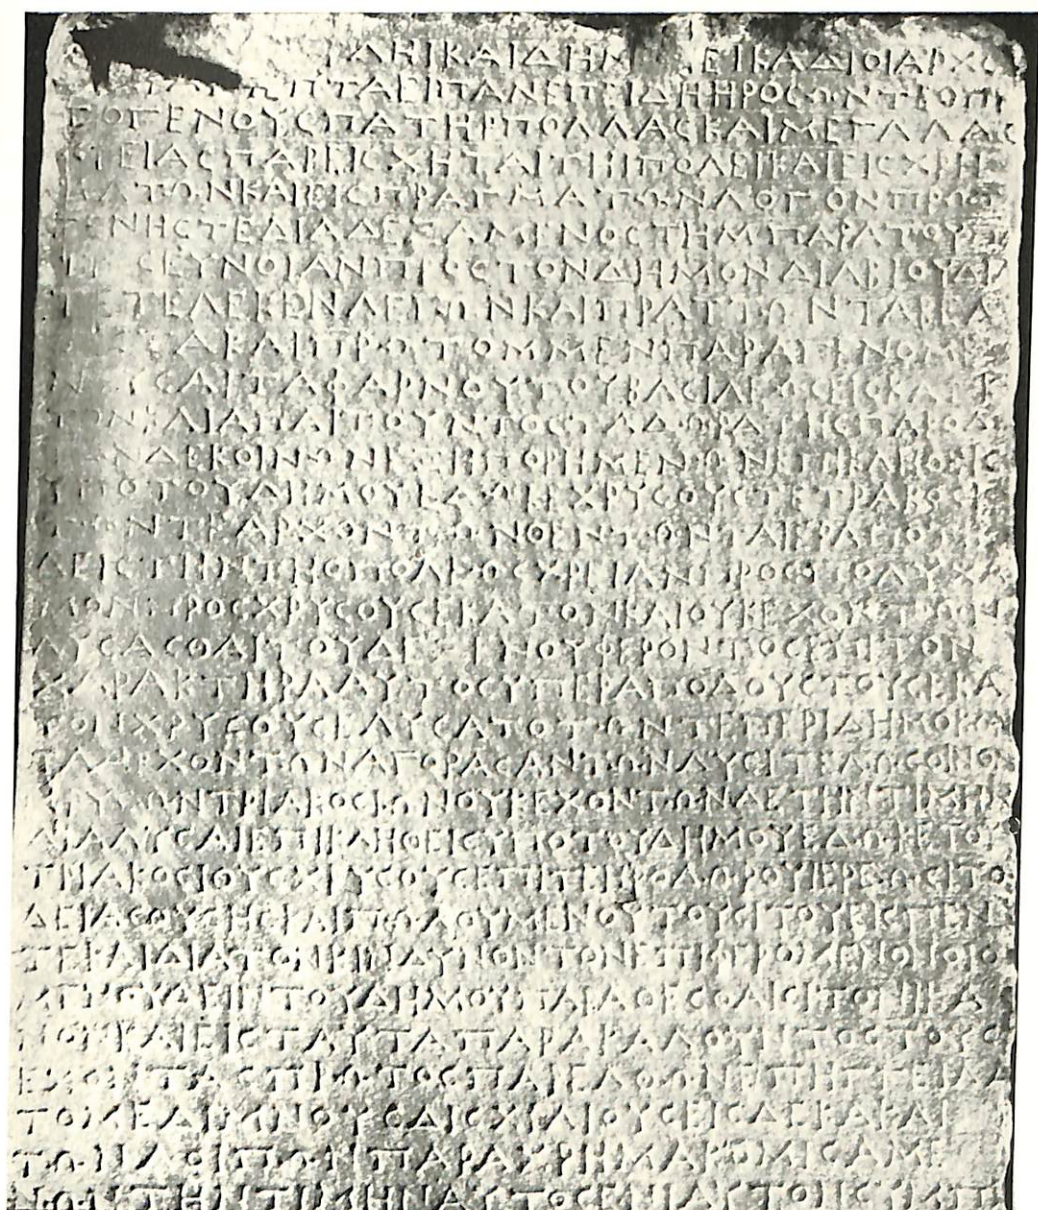 ΛΗΙΚΑΙΔΗΜ ΕΙΚΑΔΙΟΙΑΡΧΟ
ΠΤΑΕΙΠΑΝΕΠΕΙΔΗΗΡΟCΩΝΤΕΟΠΡ
ΤΟΓΕΝΟΥCΠΑΤΗΡΠΟΛΛΑCΚΑΙΜΕΓΑΛΑC
ΡΕΙΑCΠΑΡΕΙCΧΗΤΑΙΤΗΙΠΟΛΕΙΚΑΙΕΙCΧΡΗ
ΜΑΤΩΝΚΑΙΕΙCΠΡΑΓΜΑΤΩΝΛΟΓΟΝΠΡΩΤ
ΓΕΝΗCΤΕΔΙΑΔΕΞΑΜΕΝΟCΤΗΜΠΑΡΑΤΟΥΠ
CΕΥΝΟΙΑΝΠΡΟCΤΟΝΔΗΜΟΝΔΙΑΒΙΟΥΔΙ
ΤΕΤΕΛΕΚΕΝΛΕΓΩΝΚΑΙΠΡΑΤΤΩΝΤΑΒΕΛ
ΑΚΑΙΠΡΩΤΟΜΜΕΝΠΑΡΑΓΕΝΟΜ
CΑΙΤΑΦΑΡΝΟΥΤΟΥΒΑCΙΛΕΩCΕΙCΚΑΓΚ
ΤΟΝΚΑΙΑΠΑΙΤΟΥΝΤΟCΤΑΔΩΡΑΤΗCΠΑΡΟΔ
ΩΝΔΕΚΟΙΝΩΝΕΞΗΠΟΡΗΜΕΝΩΝΕΠΙΚΛΗΘΕΙC
ΥΠΟΤΟΥΔΗΜΟΥΕΔΩΚΕΧΡΥCΟΥCΤΕΤΡΑΚΟC
ΤΩΝΤΕΑΡΧΟΝΤΩΝΘΕΝΤΩΝΤΑΙΕΡΑΠΟΤΗ
ΑΕΙCΤΗΝΤΗCΠΟΛΕΩCΧΡΕΙΑΝΠΡΟCΠΟΛΥΧΑ
ΜΟΝΠΡΟCΧΡΥCΟΥCΕΚΑΤΟΝΚΑΙΟΥΚΕΧΟΝΤΩΝ
ΛΥCΑCΘΑΙΤΟΥΔΕΞΕΝΟΥΦΕΡΟΝΤΟCΕΠΙΤΟΝ
ΧΑΡΑΚΤΗΡΑΑΥΤΟCΥΠΕΡΑΠΟΔΟΥCΤΟΥCΕΚΑ
ΤΟΝΧΡΥCΟΥCΕΛΥCΑΤΟΤΩΝΤΕΠΕΡΙΔΗΜΟΚΩΝ
ΤΑΑΡΧΟΝΤΩΝΑΓΟΡΑCΑΝΤΩΝΛΥCΙΤΕΛΩCΟΙΝΟΝ
ΧΡΥCΩΝΤΡΙΑΚΟCΙΩΝΟΥΚΕΧΟΝΤΩΝΔΕΤΗΝΤΙΜΗΝ
ΔΙΑΛΥCΑΙΕΠΙΚΛΗΘΕΙCΥΠΟΤΟΥΔΗΜΟΥΕΔΩΚΕΤΟΥC
ΤΡΙΑΚΟCΙΟΥCΧΡΥCΟΥCΕΠΙΤΕΗΡΟΔΩΡΟΥΙΕΡΕΩCΙΤΟ
ΔΕΙΑCΟΥCΗCΚΑΙΠΩΛΟΥΜΕΝΟΥΤΟΥCΙΤΟΥΕΙCΠΕΝ
ΤΕΚΑΙΔΙΑΤΟΝΚΙΝΔΥΝΟΝΤΟΝΕΠΙΦΕΡΟΜΕΝΟΝΟΙΟ
ΜΕΝΟΥΔΕΙΝΤΟΥΔΗΜΟΥΠΑΡΑΘΕCΘΑΙCΙΤΟΝΙΚΑ
ΝΟΝΚΑΙΕΙCΤΑΥΤΑΠΑΡΑΚΑΛΟΥΝΤΟCΤΟΥC
ΕΧΟΝΤΑCΠΡΩΤΟCΠΑΡΕΛΘΩΝΕΠΗΓΓΕΙΛΑ
ΤΟΜΕΔΙΜΝΟΥCΔΙCΧΙΛΙΟΥCΕΙCΔΕΚΑΚΑΙ
ΤΩΝΛΟΙΠΩΝΠΑΡΑΧΡΗΜΑΚΟΜΙCΑΜΕ
ΝΩΝΤΗΝΤΙΜΗΝΑΥΤΟCΕΝΙΑΥΤΟΝCΥΜΠΕ